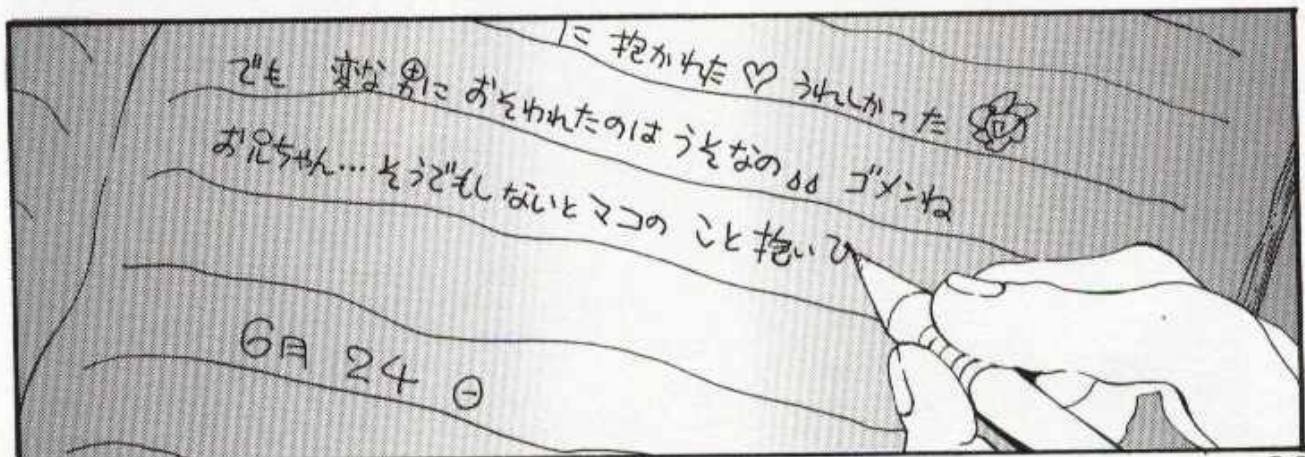 に抱かれた♡ うれしかった
でも 変な男に おそわれたのは うそなの ゴメンね
お兄ちゃん…そうでもしないとマコの こと抱い
6月 24日